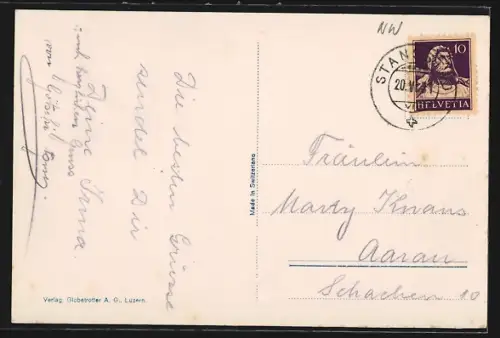 NW
STANS
20.V
10
HELVETIA
Die besten Grüsse
sendet Dir
Deine Irma.
und herzlichen Gruss
von
Made in Switzerland
Fräulein
Mary Knaus
Aarau
Schachen 10
Verlag Globetrotter A. G., Luzern.